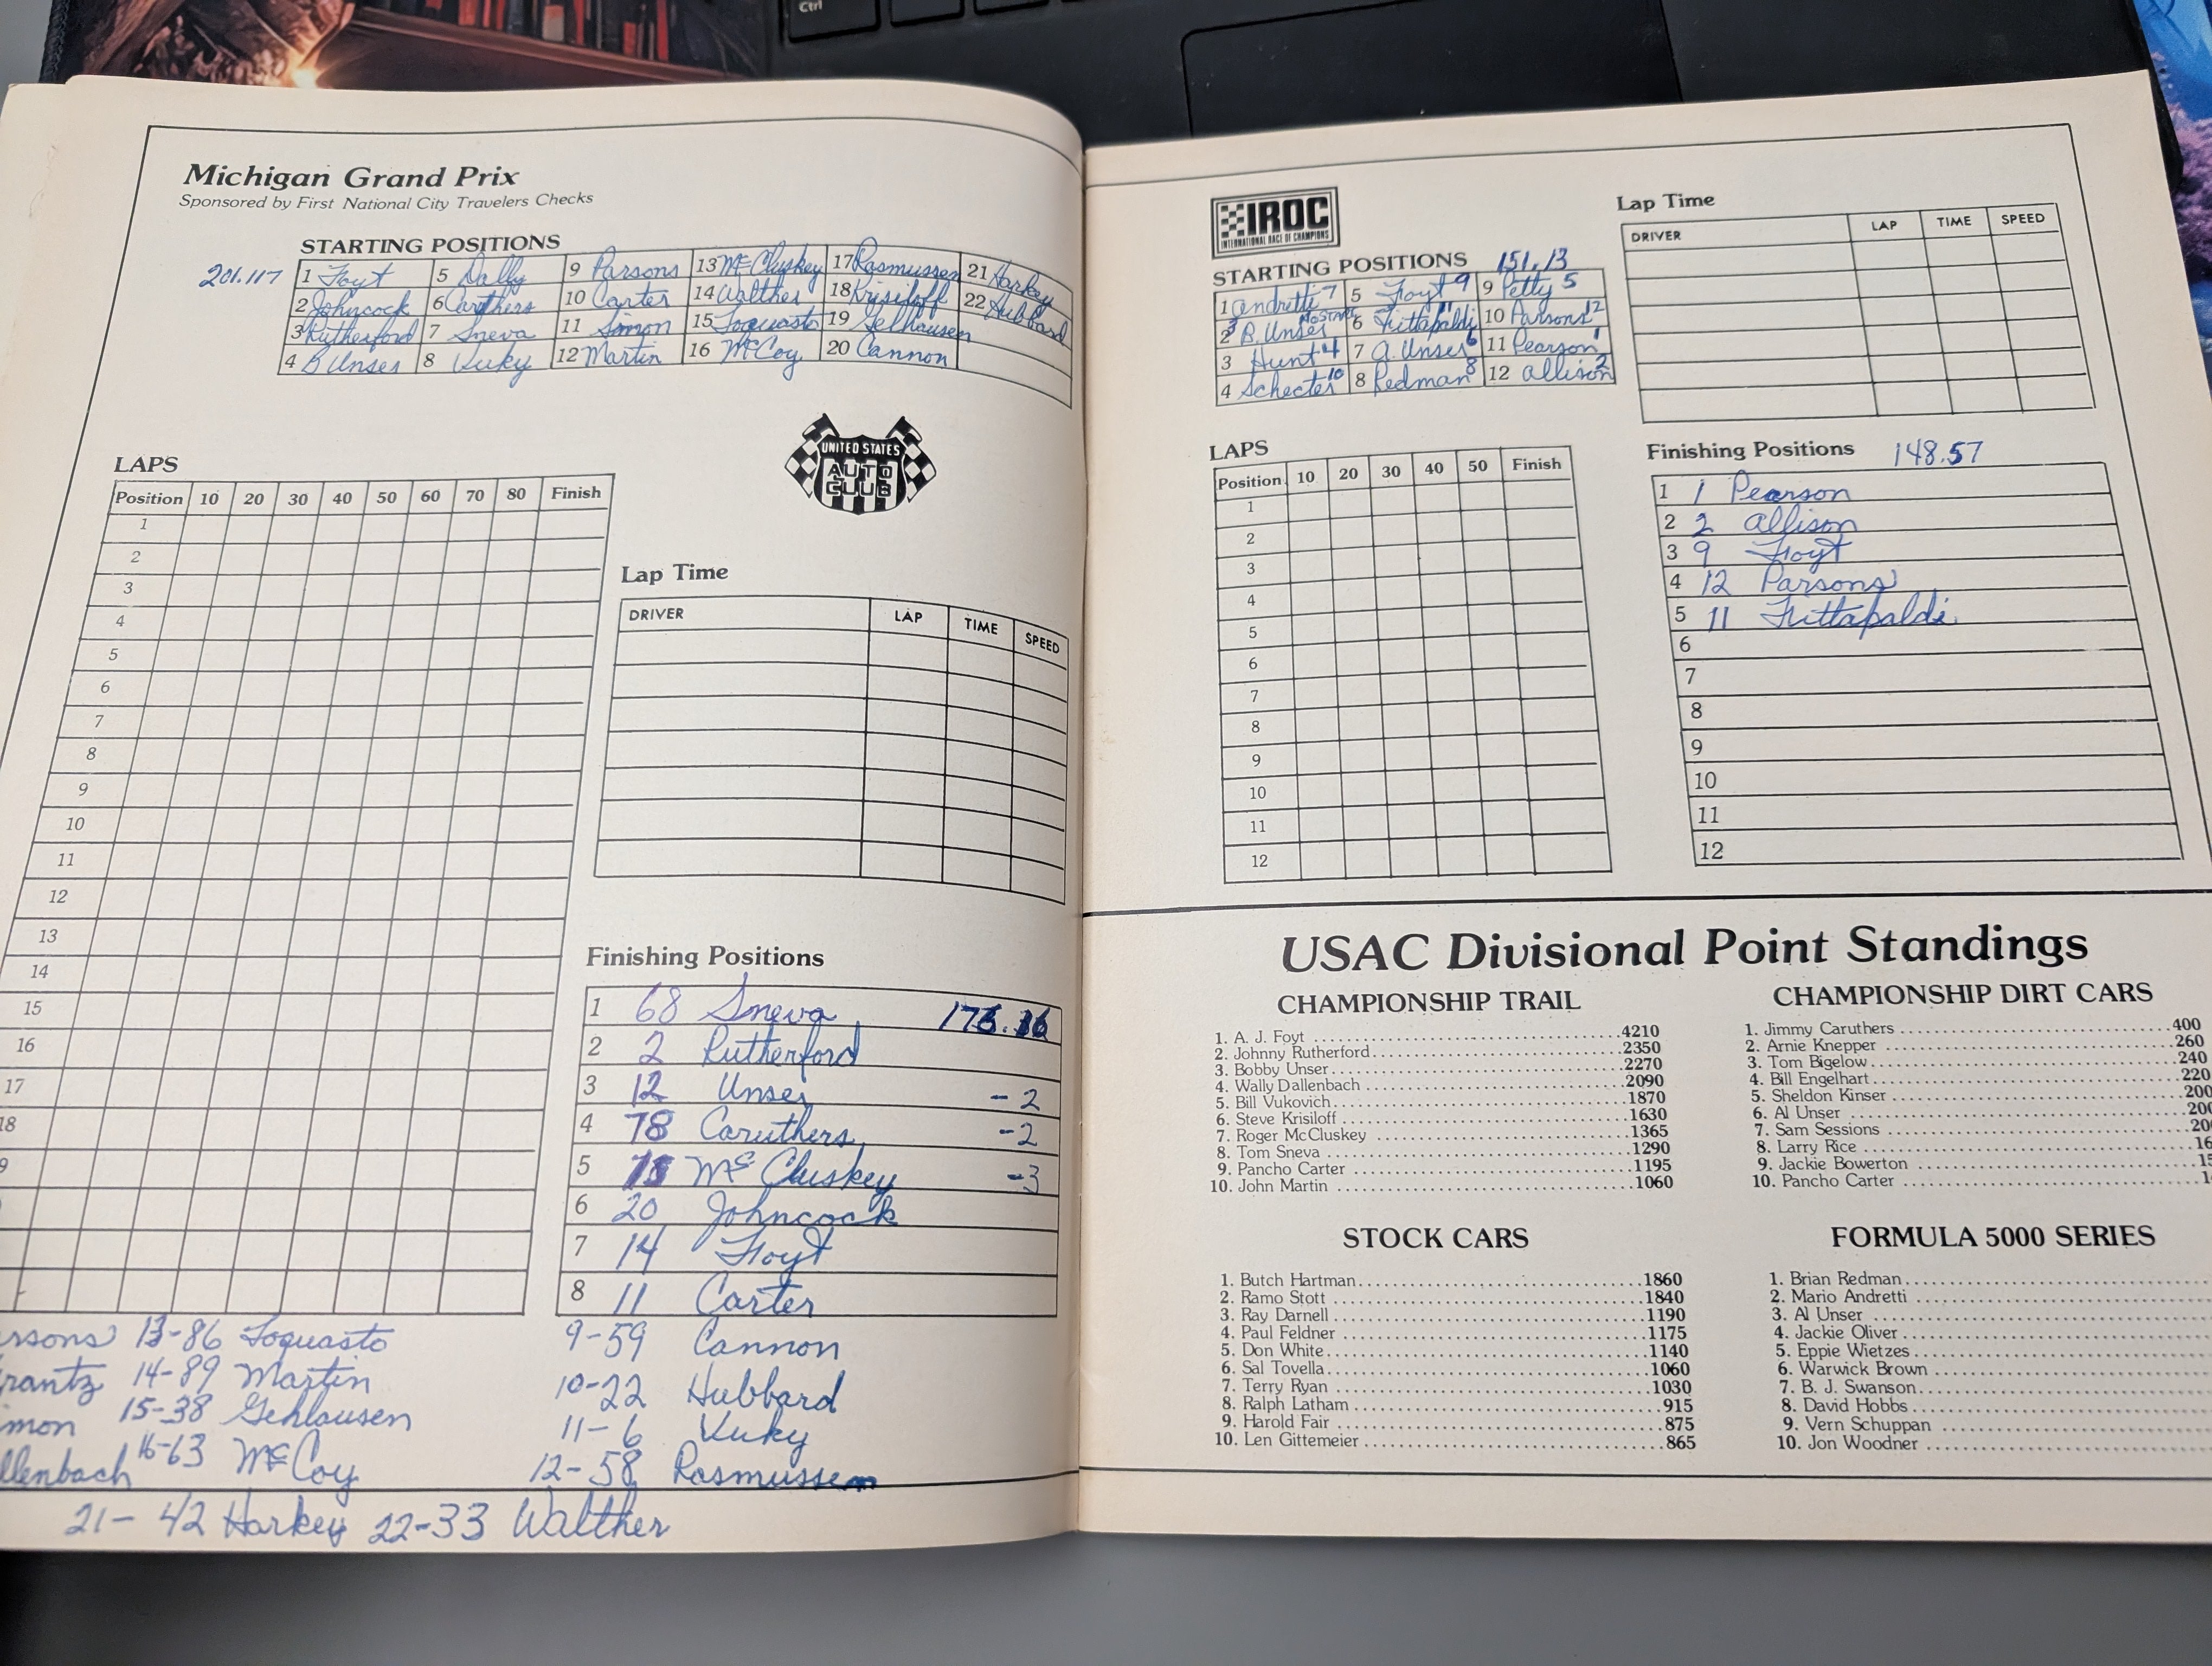 Ctrl
Michigan Grand Prix
Sponsored by First National City Travelers Checks
STARTING POSITIONS
201.117
1 Foyt 5 Dally 9 Parsons 13 McCluskey 17 Rasmussen 21 Harkey
2 Johncock 6 Caruthers 10 Carter 14 Walther 18 Krisiloff 22 Hubbard
3 Rutherford 7 Sneva 11 Simon 15 Loquasto 19 Gelhausen
4 B Unser 8 Vuky 12 Martin 16 McCoy 20 Cannon
UNITED STATES
AUTO
CLUB
LAPS
Position 10 20 30 40 50 60 70 80 Finish
1
2
3
4
5
6
7
8
9
10
11
12
13
14
15
16
17
18
9
Lap Time
DRIVER LAP TIME SPEED
Finishing Positions
1 68 Sneva 176.16
2 2 Rutherford
3 12 Unser -2
4 78 Caruthers -2
5 McCluskey -3
6 20 Johncock
7 14 Foyt
8 11 Carter
9-59 Cannon
10-22 Hubbard
11-6 Vuky
12-58 Rasmussen
rsons 13-86 Loquasto
rantz 14-89 Martin
mon 15-38 Gehlausen
llenbach 16-63 McCoy
21-42 Harkey 22-33 Walther
IROC
INTERNATIONAL RACE OF CHAMPIONS
STARTING POSITIONS 151.13
1 Andretti 7 5 Foyt 9 9 Petty 5
2 B. Unser 3 No Start 6 Fittapaldi 11 10 Parsons 12
3 Hunt 4 7 A. Unser 6 11 Pearson 1
4 Schecter 10 8 Redman 8 12 Allison 2
Lap Time
DRIVER LAP TIME SPEED
LAPS
Position 10 20 30 40 50 Finish
1
2
3
4
5
6
7
8
9
10
11
12
Finishing Positions 148.57
1 1 Pearson
2 2 Allison
3 9 Foyt
4 12 Parsons
5 11 Fittapaldi
6
7
8
9
10
11
12
USAC Divisional Point Standings
CHAMPIONSHIP TRAIL
1. A. J. Foyt 4210
2. Johnny Rutherford 2350
3. Bobby Unser 2270
4. Wally Dallenbach 2090
5. Bill Vukovich 1870
6. Steve Krisiloff 1630
7. Roger McCluskey 1365
8. Tom Sneva 1290
9. Pancho Carter 1195
10. John Martin 1060
CHAMPIONSHIP DIRT CARS
1. Jimmy Caruthers 400
2. Arnie Knepper 260
3. Tom Bigelow 240
4. Bill Engelhart 220
5. Sheldon Kinser 200
6. Al Unser 200
7. Sam Sessions 20
8. Larry Rice 16
9. Jackie Bowerton 15
10. Pancho Carter 1
STOCK CARS
1. Butch Hartman 1860
2. Ramo Stott 1840
3. Ray Darnell 1190
4. Paul Feldner 1175
5. Don White 1140
6. Sal Tovella 1060
7. Terry Ryan 1030
8. Ralph Latham 915
9. Harold Fair 875
10. Len Gittemeier 865
FORMULA 5000 SERIES
1. Brian Redman
2. Mario Andretti
3. Al Unser
4. Jackie Oliver
5. Eppie Wietzes
6. Warwick Brown
7. B. J. Swanson
8. David Hobbs
9. Vern Schuppan
10. Jon Woodner